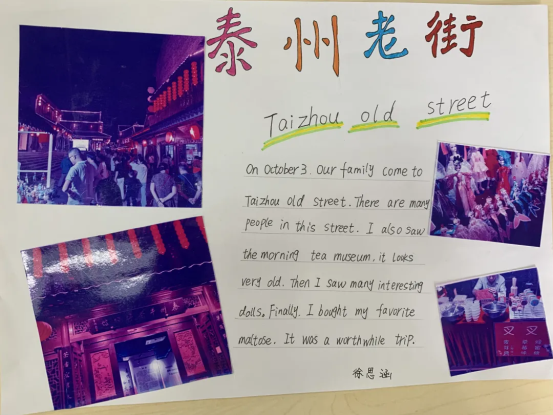 泰州老街
Taizhou old street
On October 3. Our family come to
Taizhou old street. There are many
people in this street. I also saw
the morning tea museum. it looks
very old. Then I saw many interesting
dolls. Finally. I bought my favorite
maltose. It was a worthwhile trip.
徐思涵